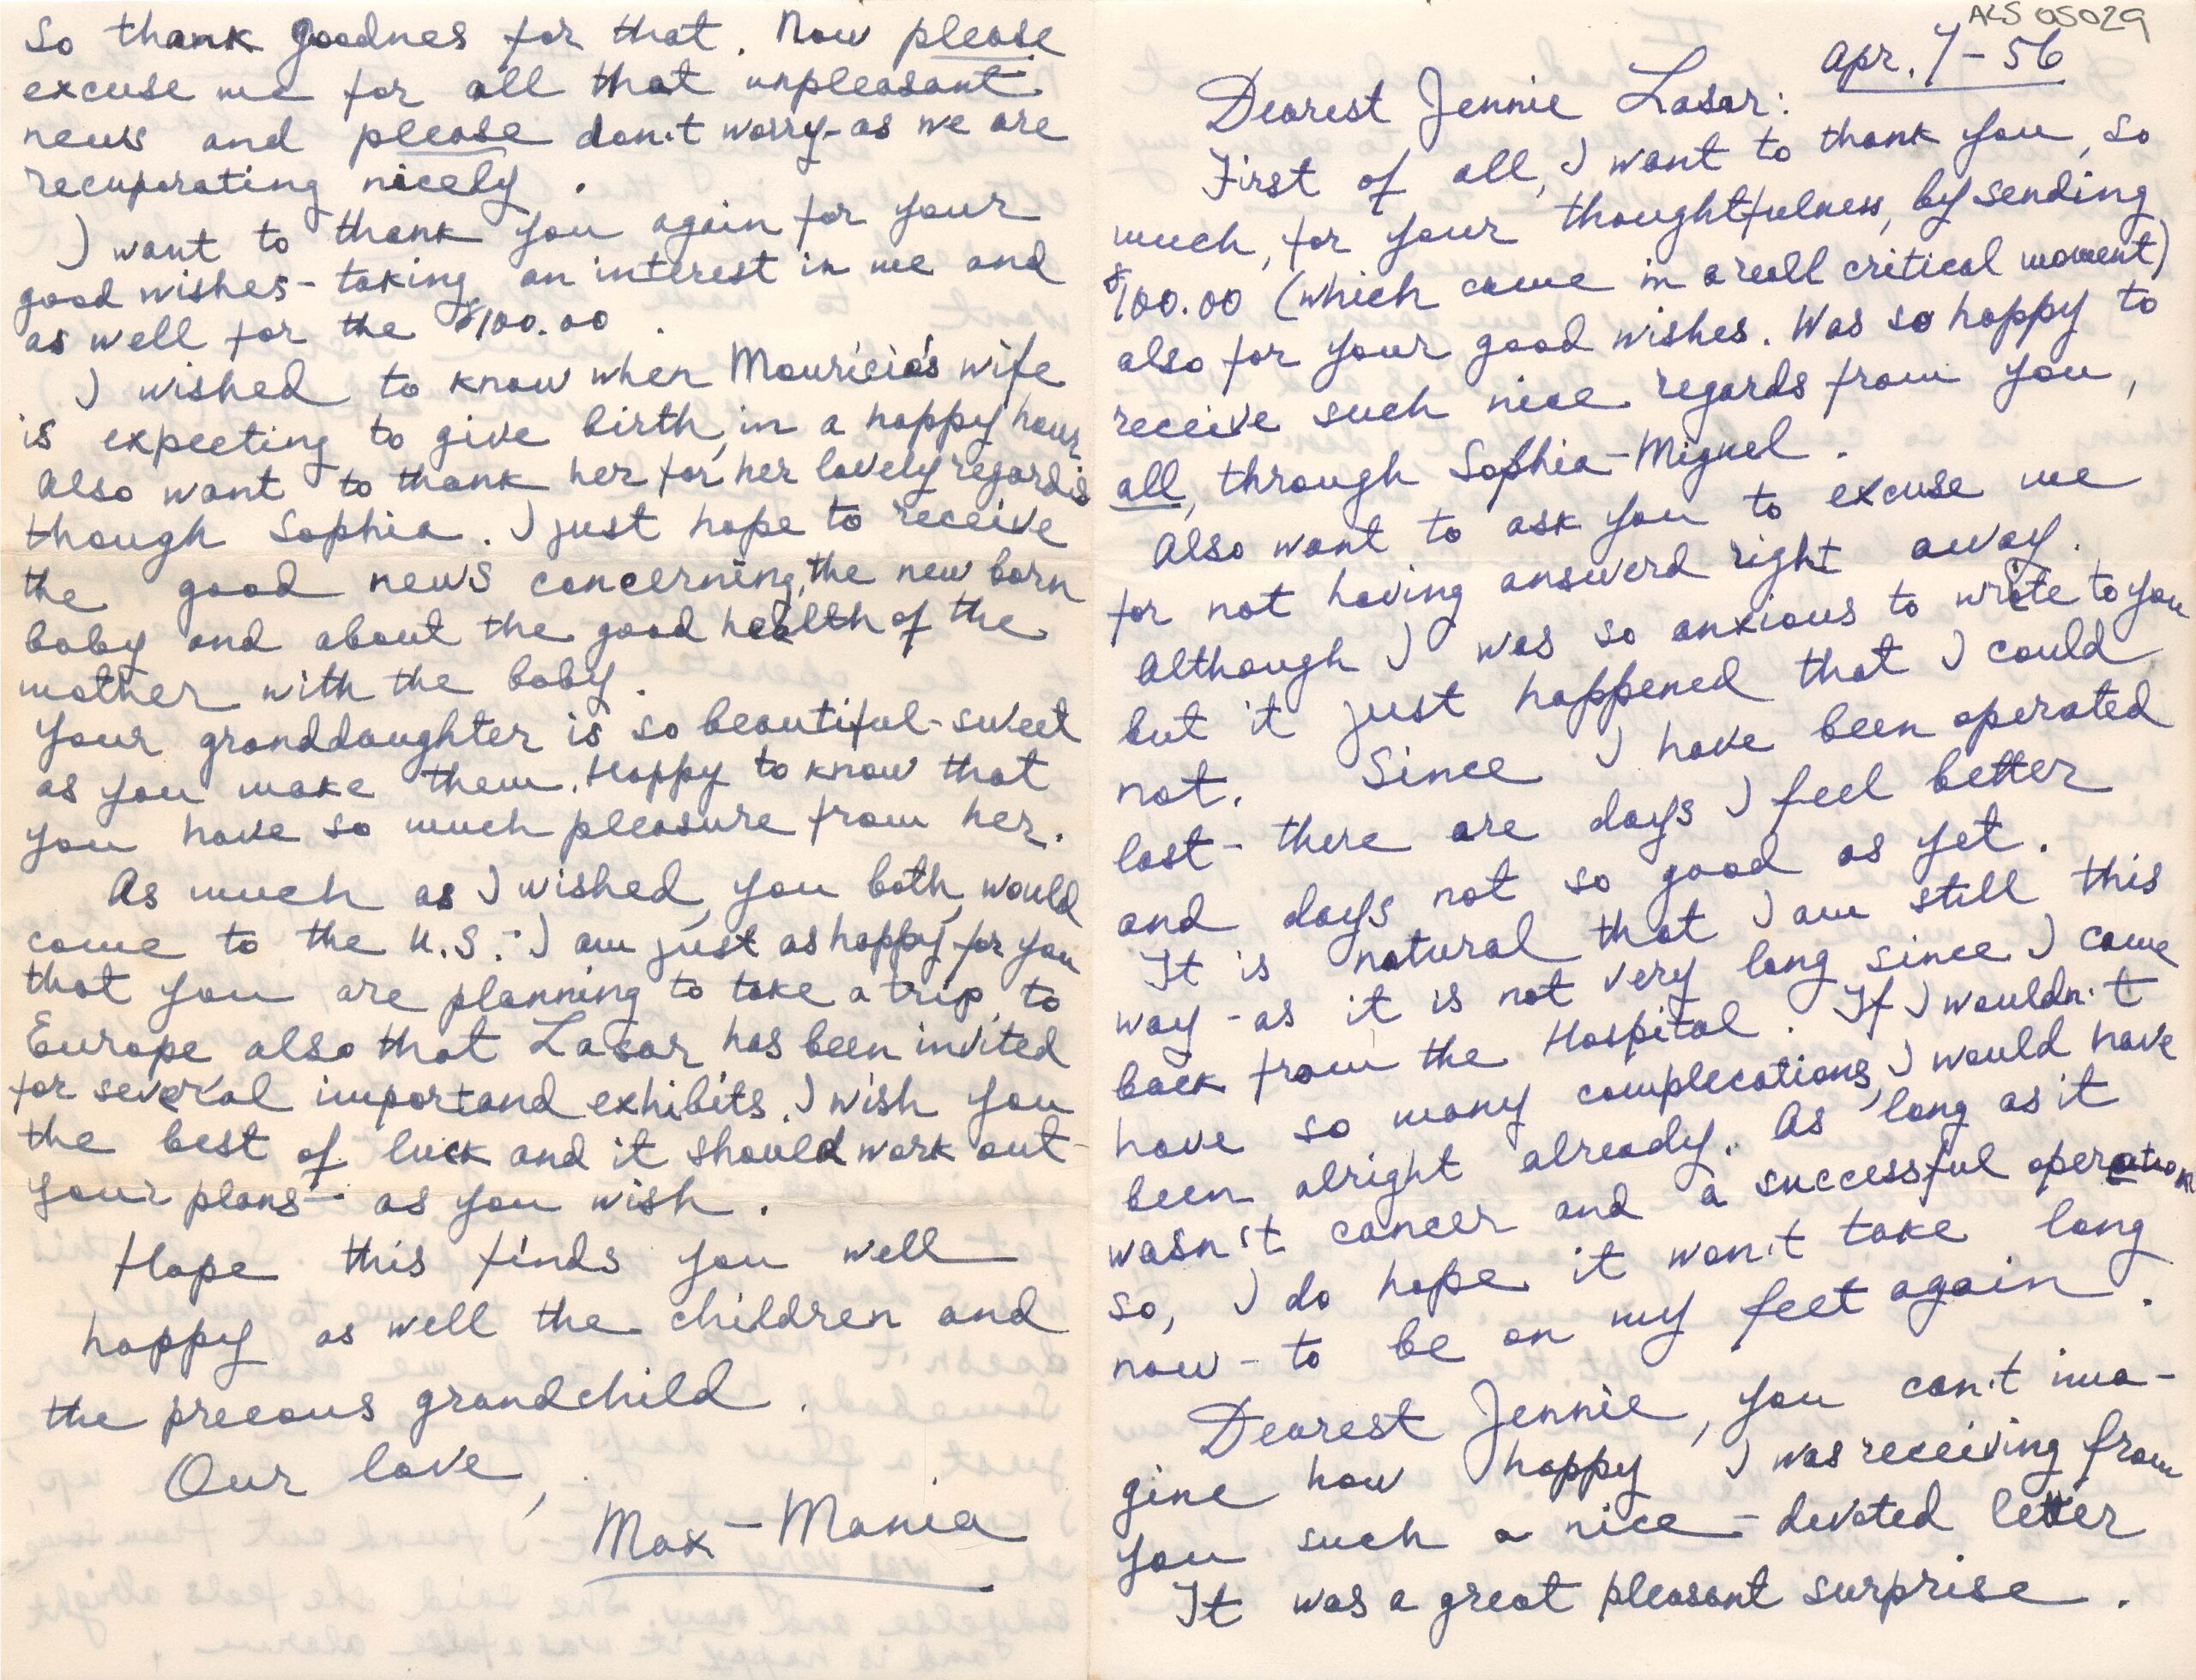 ALS 05029
Apr. 7-56
Dearest Jennie Lasar:
First of all, I want to thank you, so
much, for your thoughtfulness, by sending
$100.00 (which came in a reall critical moment)
also for your good wishes. Was so happy to
receive such nice regards from you,
all, through Sophia-Miguel.
Also want to ask you to excuse me
for not having answerd right away.
Although I was so anxious to write to you
but it just happened that I could
not. Since I have been operated
last - there are days I feel better
and days not so good as yet.
It is natural that I am still this
way - as it is not very long since I came
back from the Hospital. If I wouldn't
have so many complecations, I would have
been alright already. As long as it
wasn't cancer and a successful operation
so, I do hope it won't take long
now - to be on my feet again.
Dearest Jennie, you can't ima-
gine how happy I was receiving from
you such a nice - devoted letter
It was a great pleasant surprise.
So thank goodnes for that. Now please
excuse me for all that unpleasant
news and please don't worry - as we are
recuperating nicely.
I want to thank you again for your
good wishes - taking an interest in me and
as well for the $100.00.
I wished to know when Mauricio's wife
is expecting to give birth, in a happy hour
Also want to thank her for her lovely regards
though Sophia. I just hope to receive
the good news concerning, the new born
baby and about the good health of the
mother with the baby.
Your granddaughter is so beautiful - sweet
as you make them. Happy to know that
you have so much pleasure from her.
As much as I wished, you both, would
come to the U.S. - I am just as happy, for you
that you are planning to take a trip, to
Europe also that Lasar has been invited
for several importand exhibits. I wish you
the best of luck and it should work out -
your plans - as you wish.
Hope this finds you well
happy as well the children and
the precous grandchild.
Our love,
Max - Mania